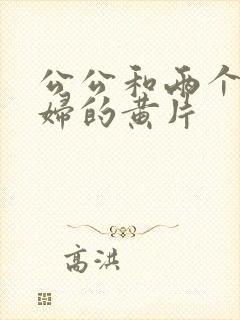 公公和两个
婦的黄片
高洪